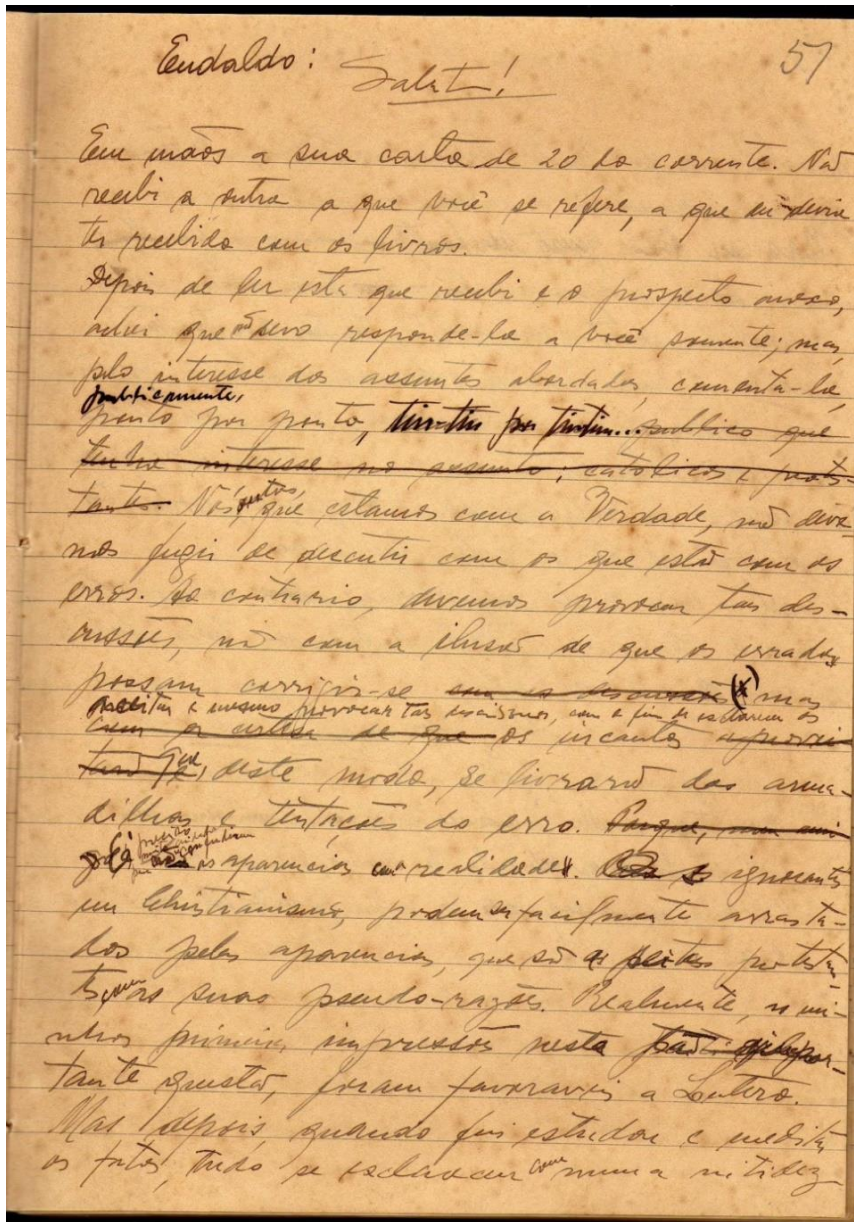 Eudaldo: Salut!
57
Em mãos a sua carta de 20 do corrente. Não
recebi a outra a que você se refere, a que eu devia
ter recebido com os livros.
Depois de ler esta que recebi e o prospecto anexo,
achei que não devo responde-la a você somente; mas,
pelo interesse dos assuntos abordados, comenta-la,
publicamente,
ponto por ponto, tin-tin por tintin... publico que
tenha interesse no assunto; catolicos e protes-
tantes. Nós, que estamos com a Verdade, não deve-
mos fugir de discutir com os que estão com os
erros. Ao contrario, devemos provocar tais dis-
cussões, não com a ilusão de que os errados
possam corrigir-se com as discussões (x) mas
aceitar e mesmo provocar tais discussões, com o fim de esclarecer os
com a certesa de que os incautos
que, deste modo, se livrarão das arma-
dilhas e tentações do erro. Porque,
as aparencias com realidades. ignorantes
em Christianismo, podem ser facilmente arrasta-
dos pelas aparencias, que são as seitas protestan-
tes, com as suas pseudo-razões. Realmente, as mi-
nhas primeiras impressões nesta
tante questão, foram favoraveis a Lutero.
Mas depois, quando fui estudar e meditar
os fatos, tudo se esclareceu com numa nitidez